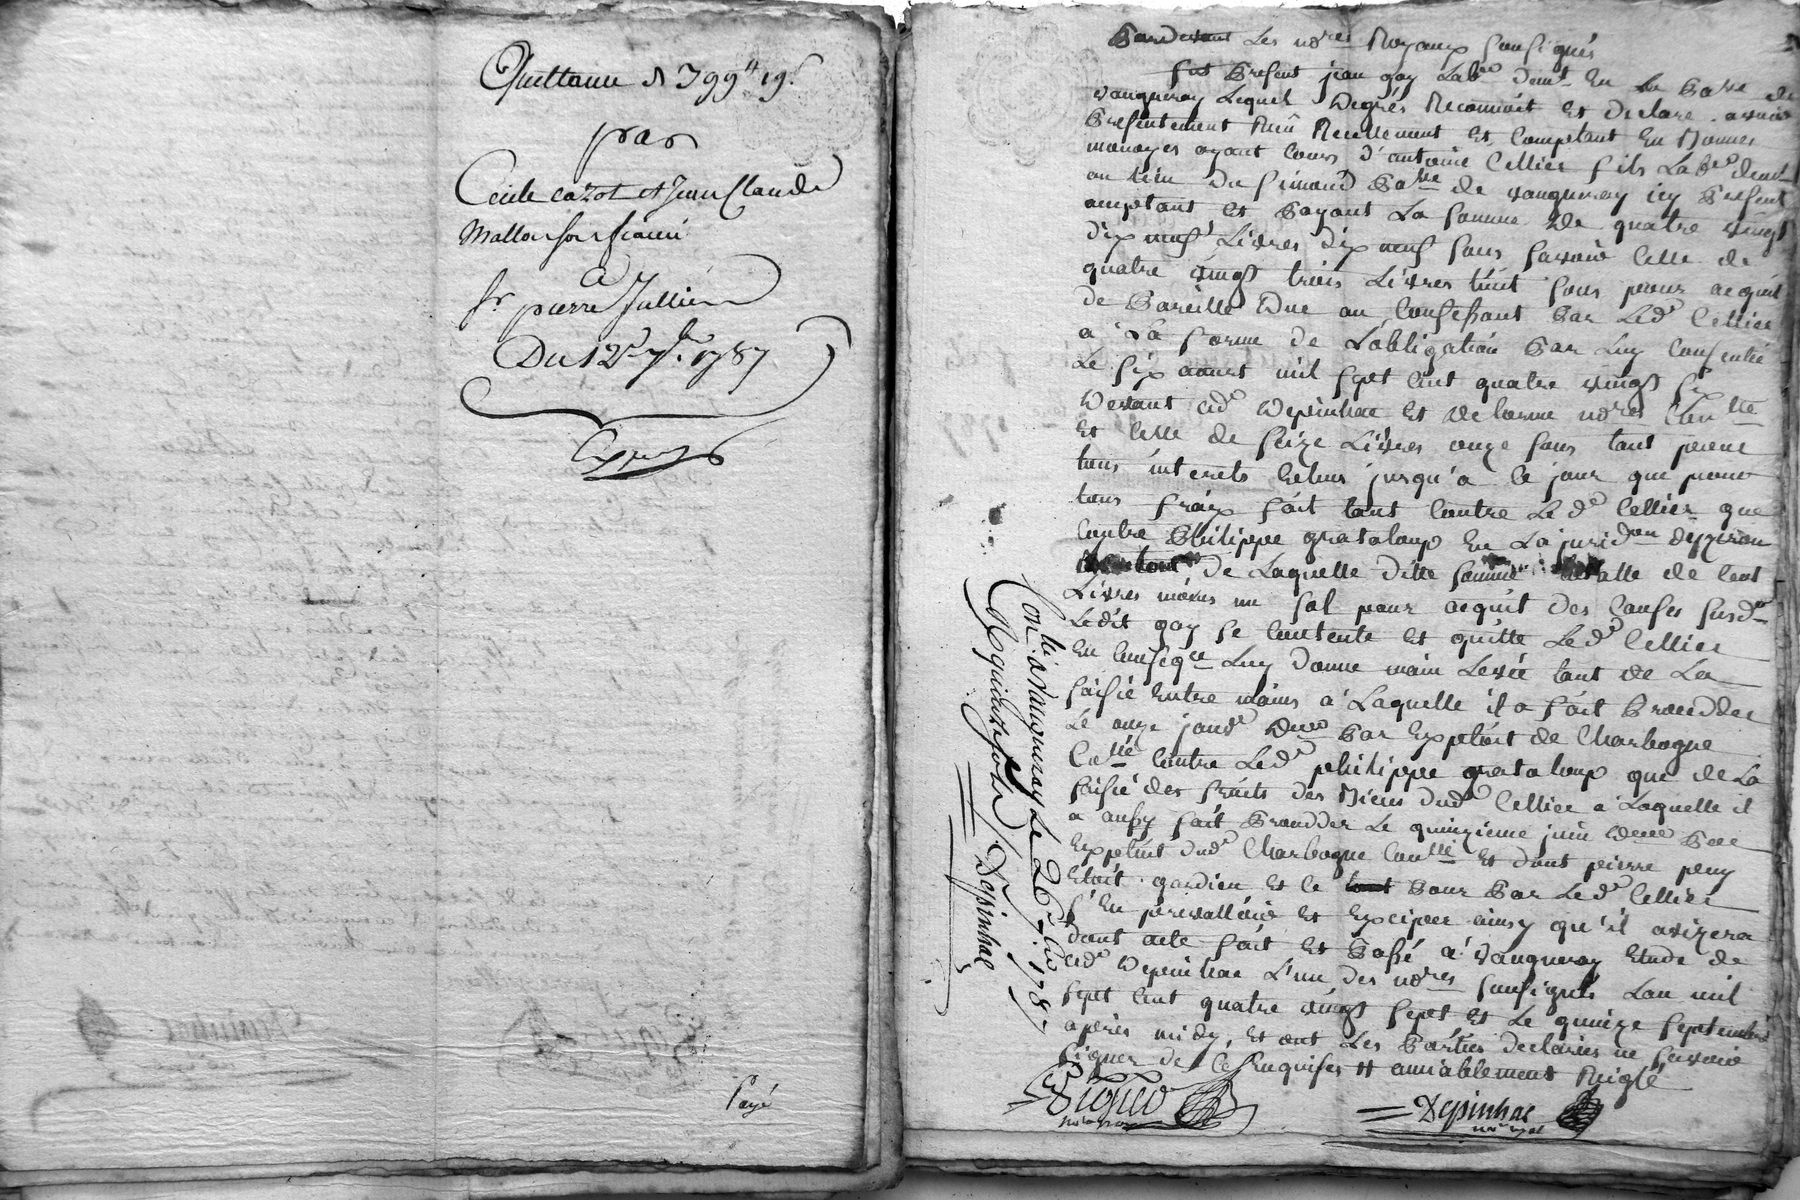 Quittance de 799ᴸ 19ˢ
par
Cécile cazot et Jean Claude
Mallon son fiancé
a
Sr pierre Jullien
Du 12e 7bre 1787
Exp
payé
Pardevant Les nores Royaux soussignés
fut Present jean gay Labr demt En la Parre de
vaugneray Lequel Degrés Reconnoit Et declare avoir
Presentement Reçu Reellement Et Comptant En Bonnes
monoyes ayant Cours d'antoine Cellier fils Labr demt
au lieu du Parre de vaugneray icy Present
acceptant Et Payant La somme De quatre vingt
dix neuf Livres dix neuf sous savoir Celle de
quatre vingt trois Livres huit sous pour acquit
de Pareille Due au Confessant Par Led Cellier
a La forme de Lobligation Par Luy Consentie
Le six aoust mil sept Cent quatre vingt six
Devant led Depinhac Et delorme nores
Et Celle de seize Livres onze sous tant pour
tous interets Echus jusqu'a Ce jour que pour
tous fraix fait tant Contre Le d Cellier que
Contre Philippe grataloup En La juridon
de Laquelle ditte somme totalle de Cent
Livres moins un sol pour acquit des Causes susd
Ledit gay se Contente Et quitte Led Cellier
En Conseqce Luy donne main Levée tant de La
saisie Entre mains a Laquelle il a fait Proceder
Le onze janvr Dernr Par Exploit de Charbogne
Contre Led philippe grataloup que de La
saisie des fruits des Biens dud Cellier a Laquelle il
a aussy fait Proceder Le quinzieme juin Par
Exploit dud Charbogne Et dont pierre peny
Etoit gardien Et Ce Pour Par Led Cellier
s'En prevalloir Et Exciper ainsy qu'il avizera
dont acte fait Et Passé a vaugneray Etude de
led Depinhac L'un des nores soussignés Lan mil
sept Cent quatre vingt sept Et Le quinze septembre
après midy, Et ont Les Parties declarées ne savoir
signer de Ce Enquises Et amiablement Reiglé
Depinhac
Conlé a vaugneray Le 26e 7bre 1787
R quinze sols
Depinhac